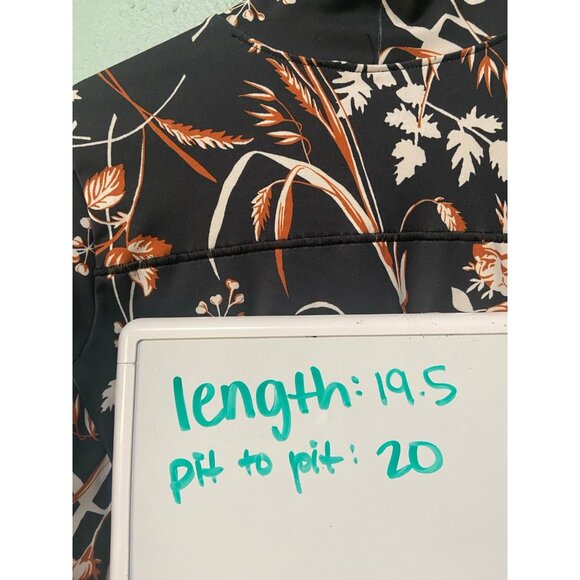 length: 19.5
pit to pit: 20